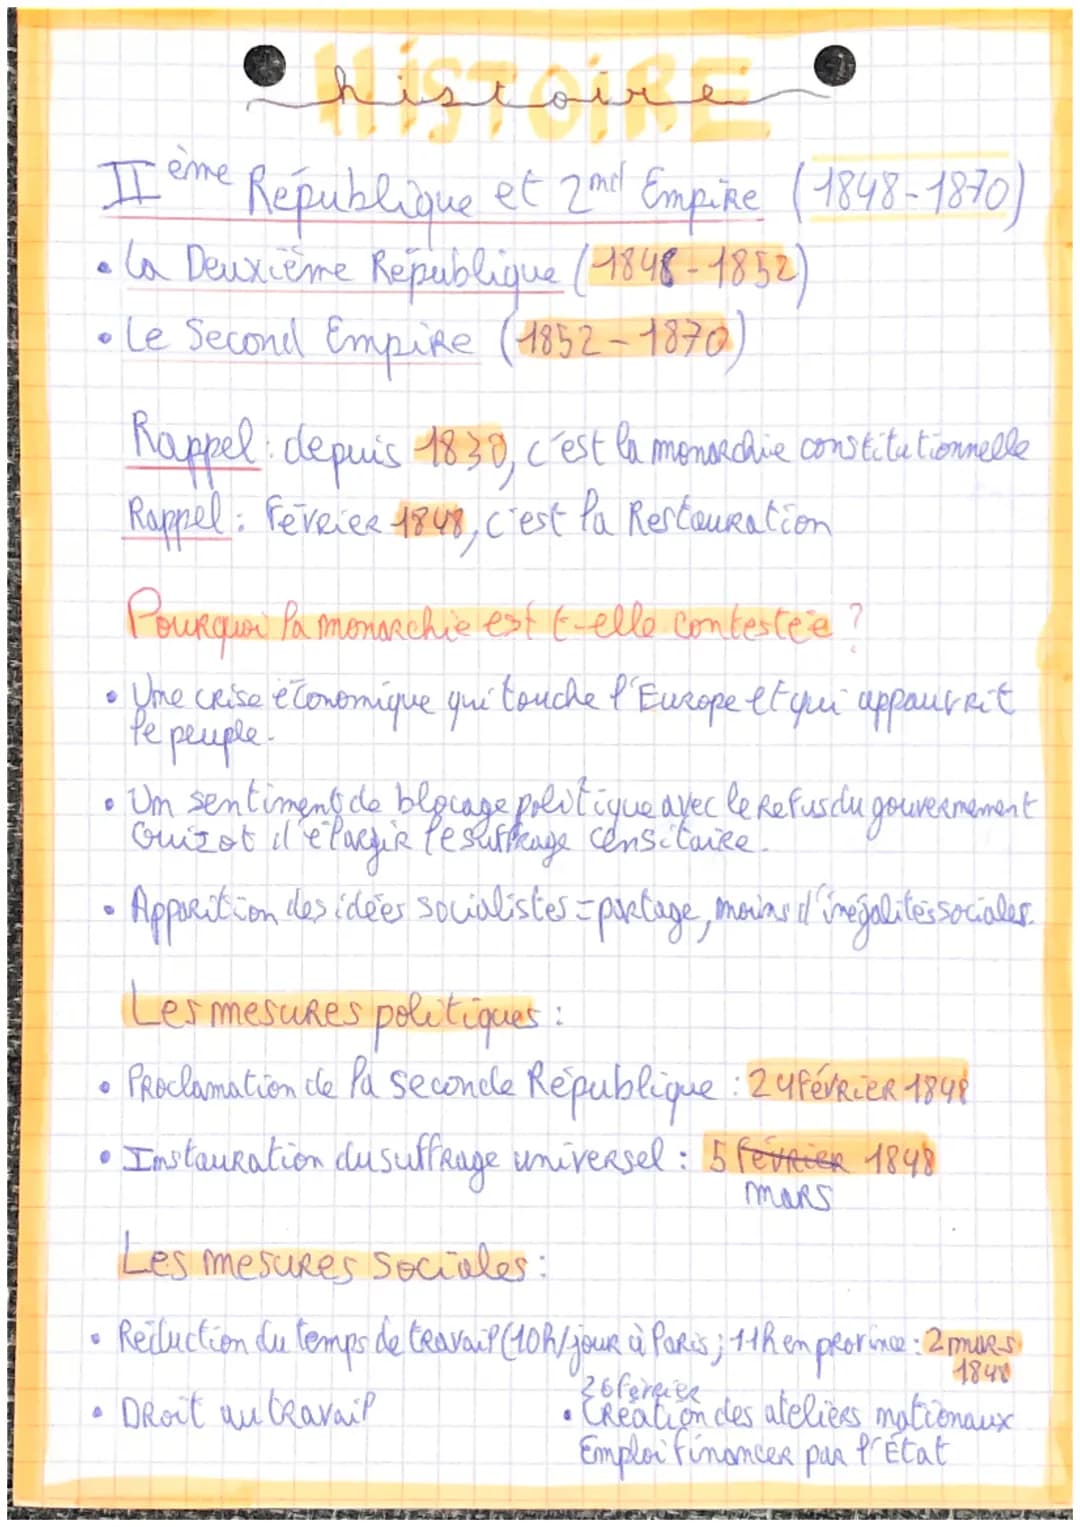 HISTOIRE
histoire
IIème République et 2nd Empire (1848-1870)
• La Deuxième République (1848-1852)
• Le Second Empire (1852-1870)
Rappel : depuis 1830, c'est la monarchie constitutionnelle
Rappel : Février 1848, c'est la Restauration
Pourquoi la monarchie est t-elle contestée ?
• Une crise économique qui touche l'Europe et qui appauvrit
le peuple.
• Un sentiment de blocage politique avec le refus du gouvernement
Guizot d'élargir le suffrage censitaire.
• Apparition des idées socialistes = partage, moins d'inégalités sociales.
Les mesures politiques :
• Proclamation de la seconde République : 24 février 1848
• Instauration du suffrage universel : 5 février 1848
mars
Les mesures sociales :
• Réduction du temps de travail (10h/jour à Paris ; 11h en province : 2 mars
1848
26 février
• Droit au travail • Création des ateliers nationaux
Emploi financer par l'État